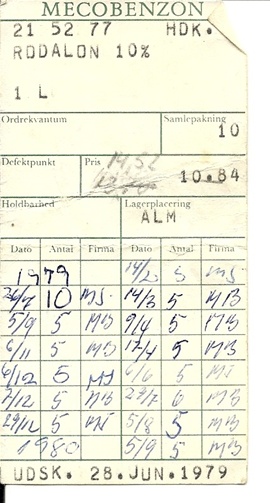 MECOBENZON
21 52 77 HDK.
RODALON 10%
1 L
Ordrekvantum Samlepakning
10
Defektpunkt Pris 14,52
10.84
Holdbarhed Lagerplacering
ALM
Dato Antal Firma Dato Antal Firma
1979 14/2 5 MS
26/7 10 MS. 14/3 5 MB
5/9 5 MB 9/4 5 MB
6/11 5 MB 17/4 5 MB
6/12 5 MS 6/6 5
7/12 5 MB 6 MB
29/12 5 5/8 5 MB
1980 5/9 5 MB
UDSK. 28.JUN.1979